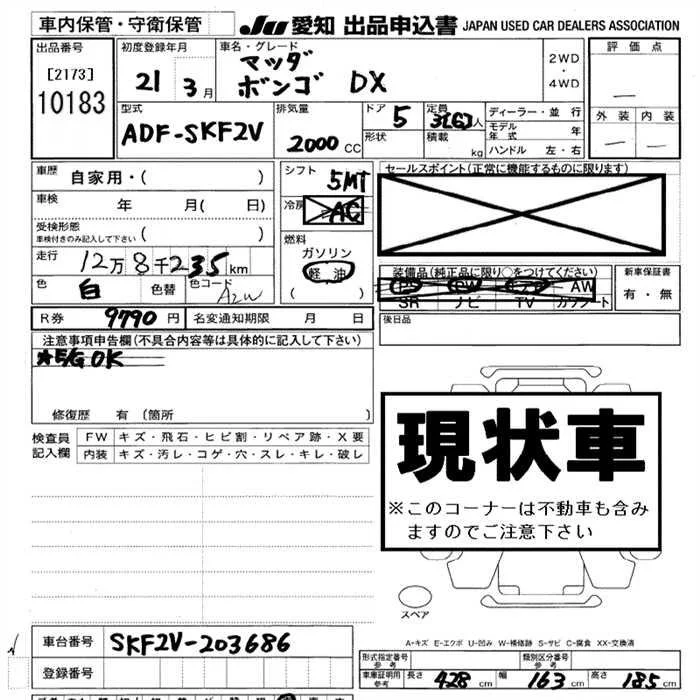 車内保管・守衛保管 JU 愛知 出品申込書 JAPAN USED CAR DEALERS ASSOCIATION
出品番号 初度登録年月 車名・グレード 評価点
[2173] 21 3月 マツダ 2WD・4WD
10183 ボンゴ DX
型式 排気量 ドア 5 定員 3[6]人 ディーラー・並行 外装 内装
ADF-SKF2V 2000 CC 形状 積載 kg モデル年式 年
ハンドル 左・右
車歴 自家用・( ) シフト 5MT セールスポイント(正常に機能するものに限ります)
車検 年 月( 日) 冷房 AC
受検形態 車検付きのみ記入して下さい ( ) 燃料
走行 12万8千235km ガソリン
軽油 装備品(純正品に限り○をつけてください) 新車保証書
色 白 色替 色コード A2W ( ) PS PW エアB AW 有・無
SR ナビ TV カワシート
R券 9790円 名変通知期限 月 日 後日品
注意事項申告欄(不具合内容等は具体的に記入して下さい)
★E/G OK
修復歴 有 (箇所 )
検査員記入欄 FW キズ・飛石・ヒビ割・リペア跡・X要
内装 キズ・汚レ・コゲ・穴・スレ・キレ・破レ
現状車
※このコーナーは不動車も含み
ますのでご注意下さい
スペア
A-キズ E-エクボ U-凹み W-補修跡 S-サビ C-腐食 XX-交換済
車台番号 SKF2V-203686
登録番号
形式指定番号 参考 類別区分番号 参考
車庫証明用 参考 長さ 428 cm 幅 163 cm 高さ 185 cm